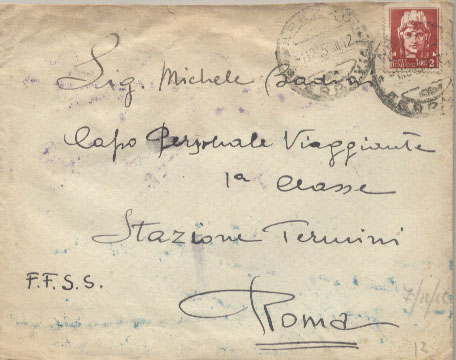 Sig Michele
Capo Personale Viaggiante
1ª Classe
Stazione Termini
F.F.S.S.
Roma
12